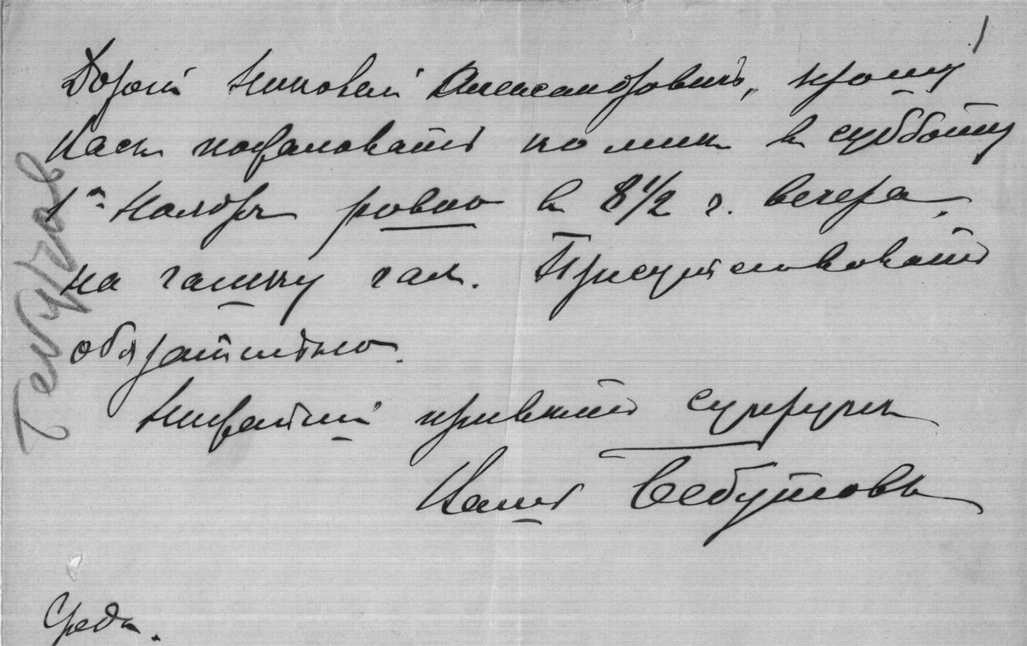 1
Дорогой Николай Александровичъ, прошу
Васъ пожаловать ко мнѣ въ субботу
1го Ноября ровно въ 8 1/2 ч. вечера
на чашку чая. Присутствовать
обязательно.
Сердечный привѣтъ супругѣ
Вашъ
Среда.